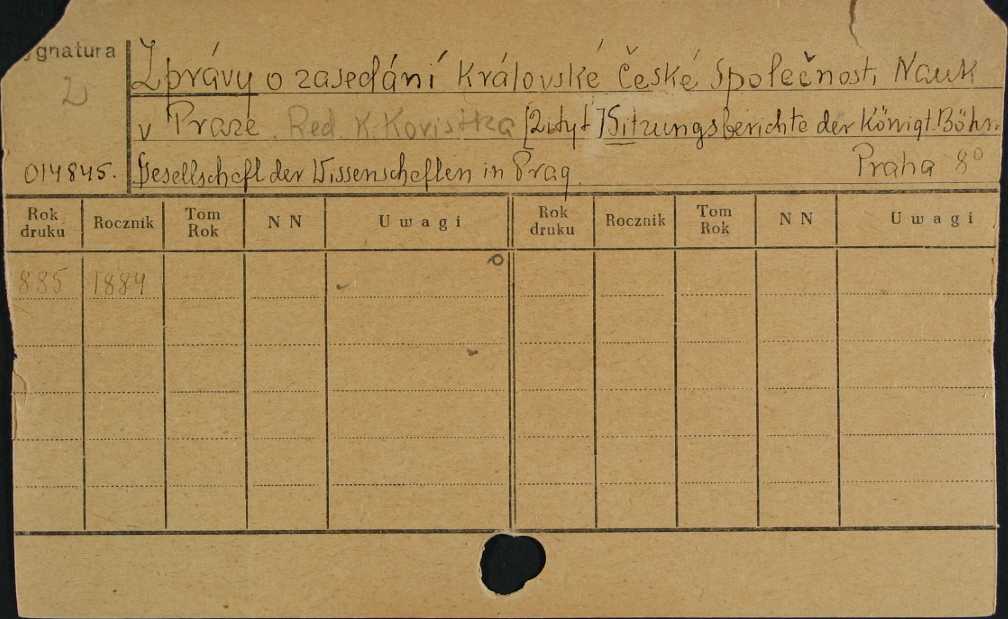 ygnatura
Z
014845.
Zprávy o zasedání Královské České Společnosti Nauk
v Praze. Red. K. Koristka [2 tyt] Sitzungsberichte der Königl. Böhm.
Gesellschaft der Wissenschaften in Prag. Praha 8°
Rok druku Rocznik Tom Rok N N Uwagi Rok druku Rocznik Tom Rok N N Uwagi
885 1884